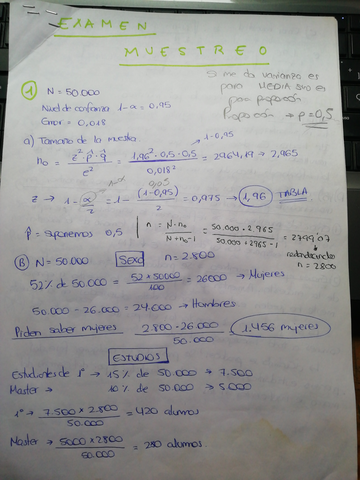 EXAMEN
MUESTREO
① N = 50.000
Nivel de confianza 1-α = 0,95
Error = 0,018
Si me da varianza es
para MEDIA sino es
para proporción
Proporción → p = 0,5
a) Tamaño de la muestra
1-0,95
n₀ = z²·p̂·q̂ / e² = 1,96²·0,5·0,5 / 0,018² = 2964,19 → 2,965
z → 1 - α/2 = 1 - (1-0,95)/2 = 0,975 → 1,96 TABLA
0,05
p̂ = suponemos 0,5
n = N·n₀ / N+n₀-1 = 50.000·2.965 / 50.000+2965-1 = 2799'07
redondeando
n = 2800
B N = 50.000 Sexo n = 2.800
52% de 50.000 = 52×50000 / 100 = 26000 → Mujeres
50.000 - 26.000 = 24.000 → Hombres
Piden saber mujeres 2.800·26.000 / 50.000 = 1.456 mujeres
ESTUDIOS
Estudiantes de 1º → 15% de 50.000 → 7.500
Master → 10% de 50.000 → 5.000
1º → 7.500 × 2.800 / 50.000 = 420 alumnos
Master → 5000 × 2800 / 50.000 = 280 alumnos.